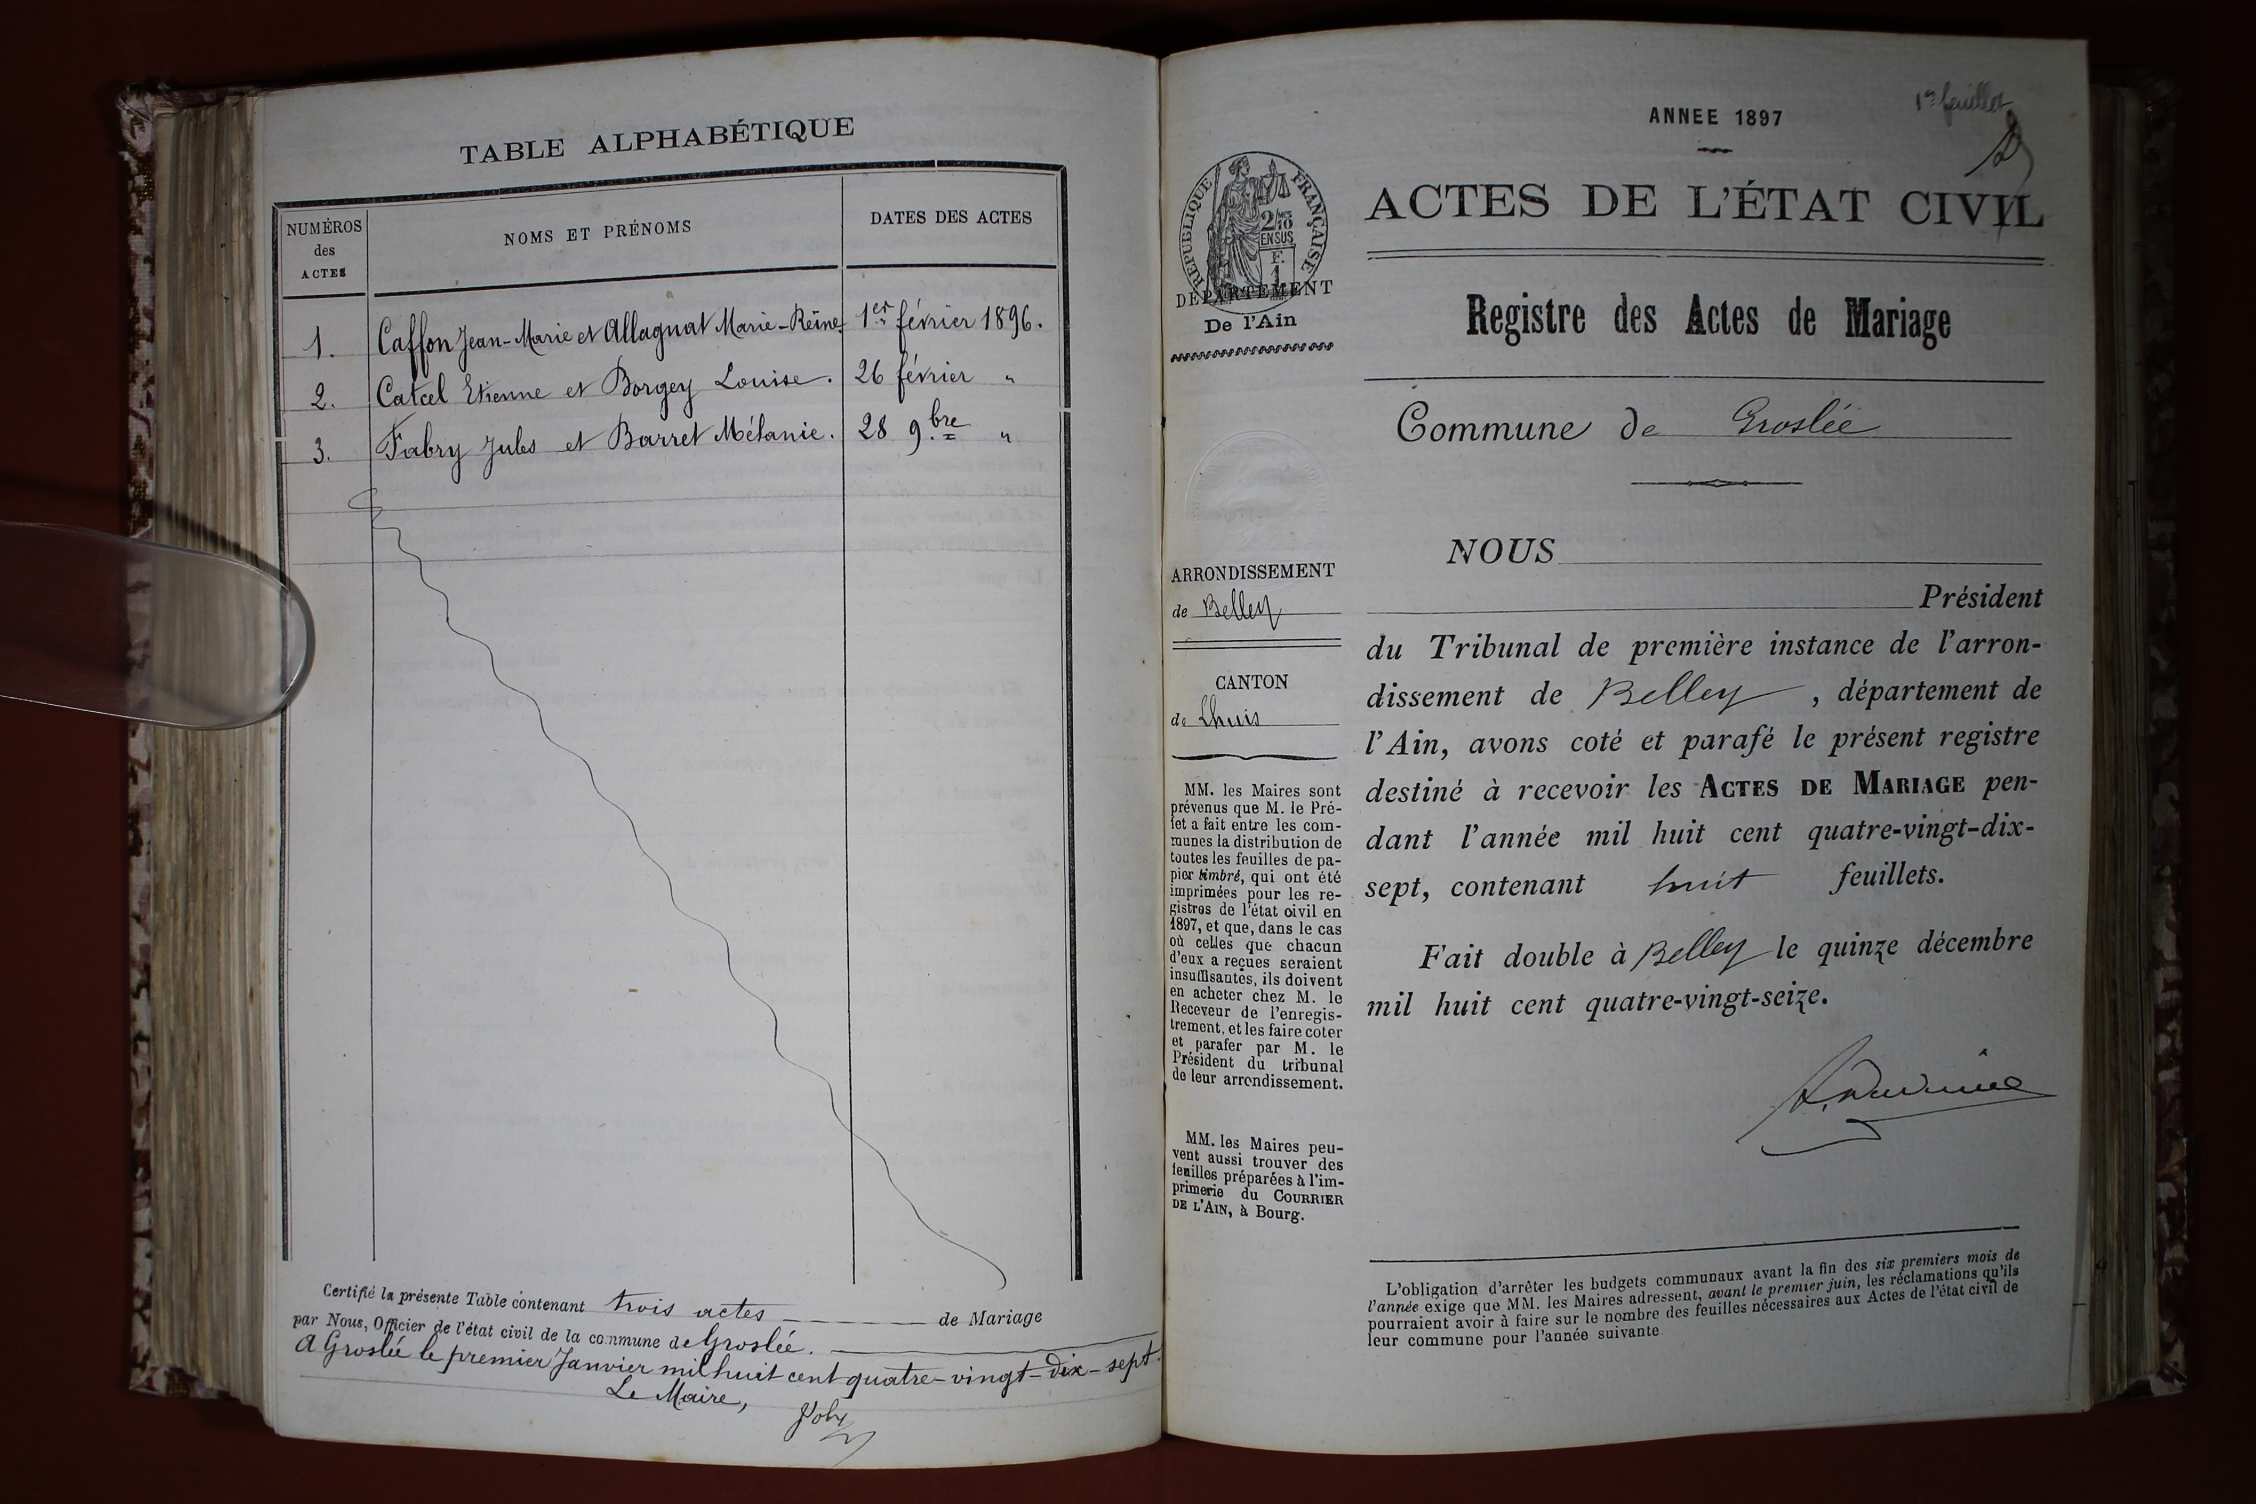 TABLE ALPHABÉTIQUE
NUMÉROS
des
ACTES
NOMS ET PRÉNOMS
DATES DES ACTES
1. Caffon Jean-Marie et Allagnat Marie-Reine 1er février 1896.
2. Catcel Etienne et Borgey Louise. 26 février "
3. Fabry Jules et Barret Mélanie. 28 9.bre "
Certifié la présente Table contenant trois actes de Mariage
par Nous, Officier de l'état civil de la commune de Groslée.
A Groslée le premier Janvier mil huit cent quatre-vingt-dix-sept.
Le Maire,
1er feuillet
ANNEE 1897
RÉPUBLIQUE FRANÇAISE
2/10
EN SUS
F.
1
DÉPARTEMENT
De l'Ain
ACTES DE L'ÉTAT CIVIL
Registre des Actes de Mariage
Commune de Groslée
ARRONDISSEMENT
de Belley
CANTON
de Lhuis
MM. les Maires sont
prévenus que M. le Pré-
fet a fait entre les com-
munes la distribution de
toutes les feuilles de pa-
pier timbré, qui ont été
imprimées pour les re-
gistres de l'état civil en
1897, et que, dans le cas
où celles que chacun
d'eux a reçues seraient
insuffisantes, ils doivent
en acheter chez M. le
Receveur de l'enregis-
trement, et les faire coter
et parafer par M. le
Président du tribunal
de leur arrondissement.
MM. les Maires peu-
vent aussi trouver des
feuilles préparées à l'im-
primerie du COURRIER
DE L'AIN, à Bourg.
NOUS
Président
du Tribunal de première instance de l'arron-
dissement de Belley, département de
l'Ain, avons coté et parafé le présent registre
destiné à recevoir les ACTES DE MARIAGE pen-
dant l'année mil huit cent quatre-vingt-dix-
sept, contenant huit feuillets.
Fait double à Belley le quinze décembre
mil huit cent quatre-vingt-seize.
L'obligation d'arrêter les budgets communaux avant la fin des six premiers mois de
l'année exige que MM. les Maires adressent, avant le premier juin, les réclamations qu'ils
pourraient avoir à faire sur le nombre des feuilles nécessaires aux Actes de l'état civil de
leur commune pour l'année suivante